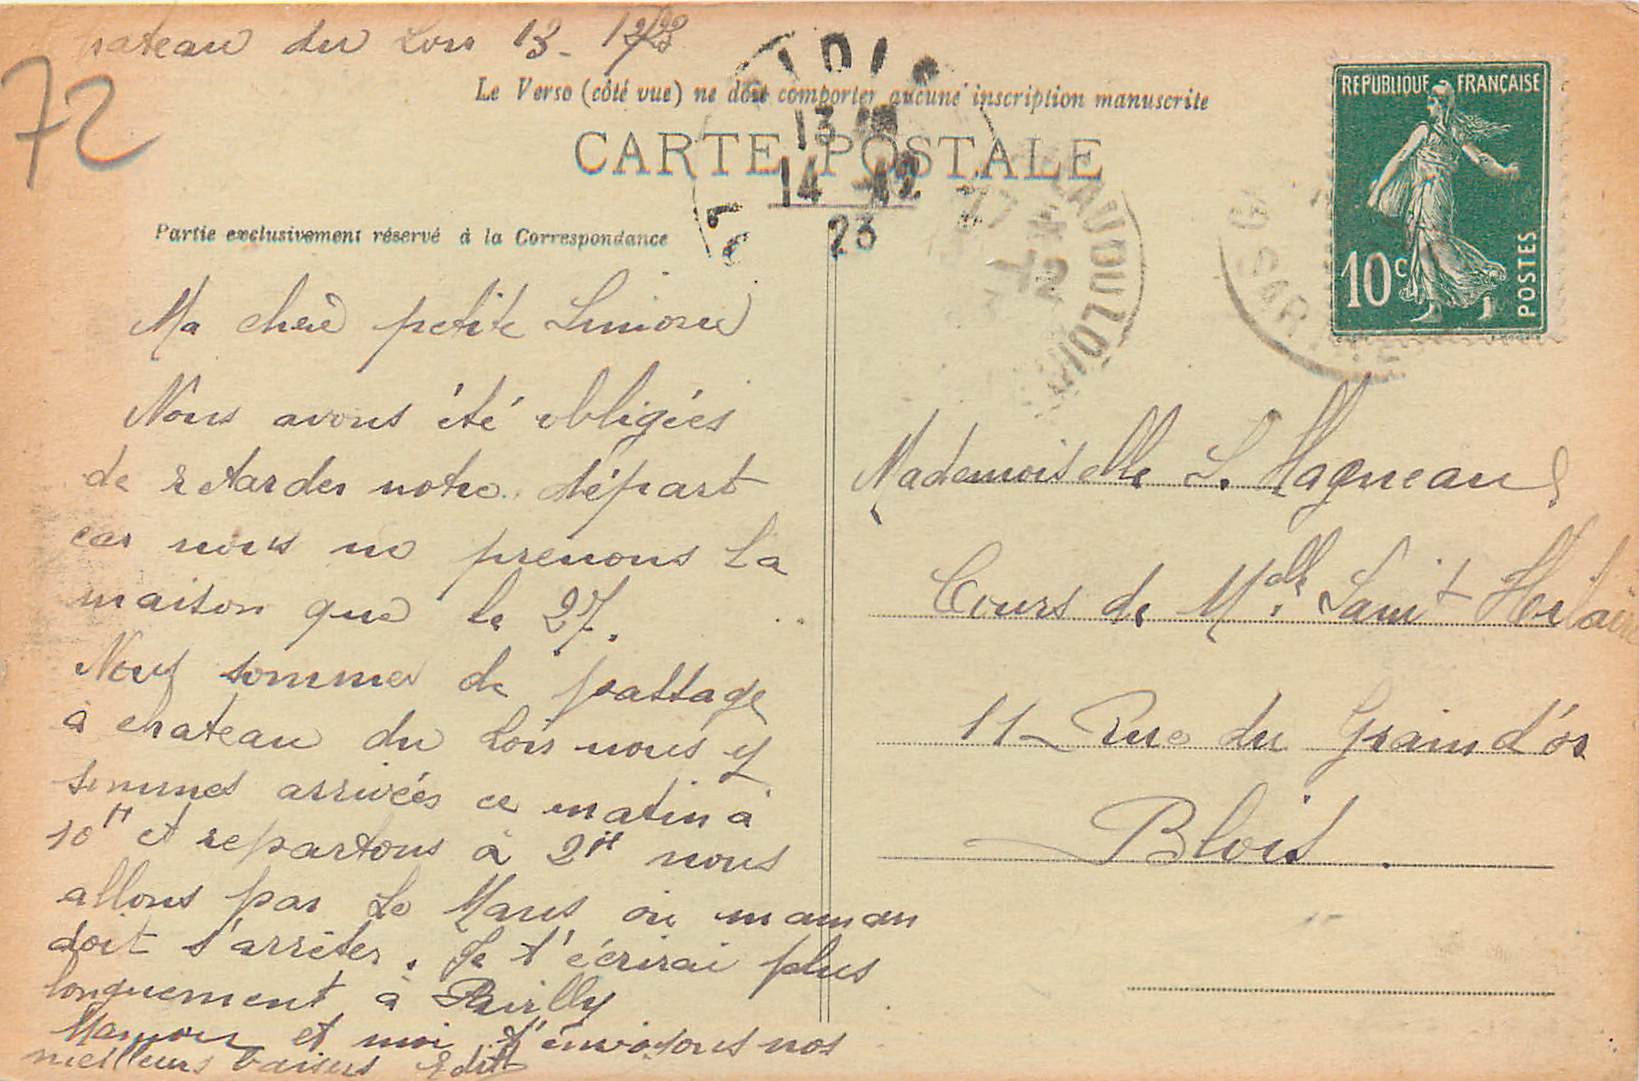 chateau du Loir 13-12/23
72
Le Verso (côté vue) ne doit comporter aucune inscription manuscrite
CARTE POSTALE
REPUBLIQUE FRANÇAISE
10c
POSTES
13
14 - 12
23
Partie exclusivement réservé à la Correspondance
Ma chère petite Simone
Nous avons été obligées
de retarder notre départ
car nous ne prenons la
maison que le 27.
Nous sommes de passage
à chateau du Loir nous y
sommes arrivées ce matin à
10H et repartons à 2H nous
allons par Le Mans où maman
doit s'arrêter. Je t'écrirai plus
longuement à
Maman et moi t'envoyons nos
meilleurs baisers Edith
Mademoiselle S. Magneau
Cours de Mdlle Saint Hilaire
11 Rue du Grain d'or
Blois.